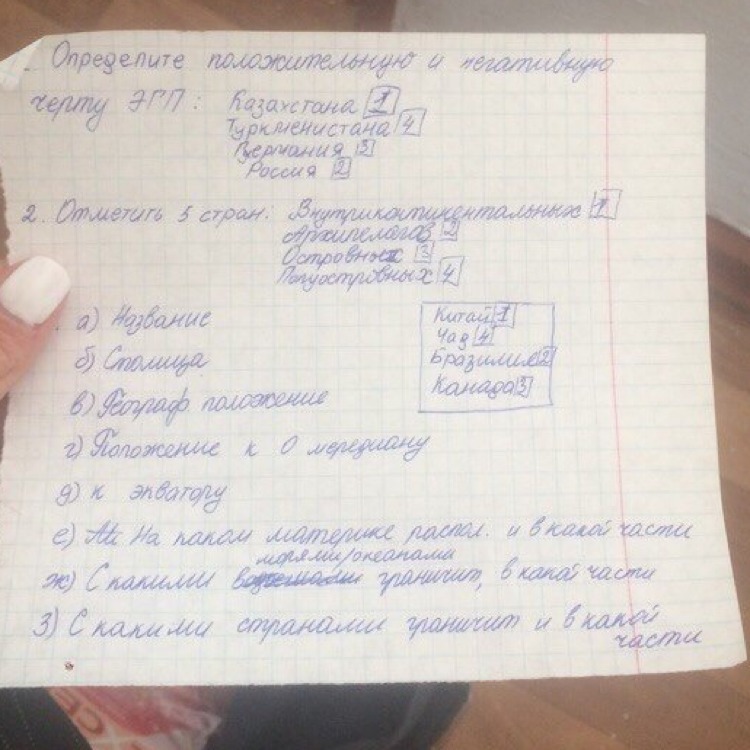 . Определите положительную и негативную
черту ЭГП: Казахстана 1
Туркменистана 4
Германия 3
Россия 2
2. Отметить 5 стран: Внутриконтинентальных 1
Архипелагов 2
Островных 3
Полуостровных 4
а) Название
б) Столица
в) Географ положение
г) Положение к 0 меридиану
д) к экватору
е) На каком материке распол. и в какой части
морями/океанами
ж) С какими граничит, в какой части
З) С какими странами граничит и в какой
части
Китай 1
Чад 4
Бразилия 2
Канада 3